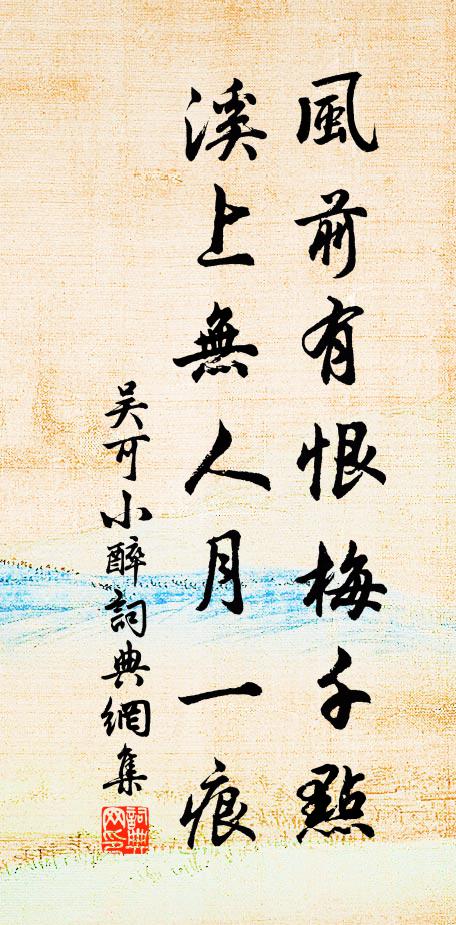 風前有恨梅千點
溪上無人月一痕
吴可小醉詞典網集
詞典网印